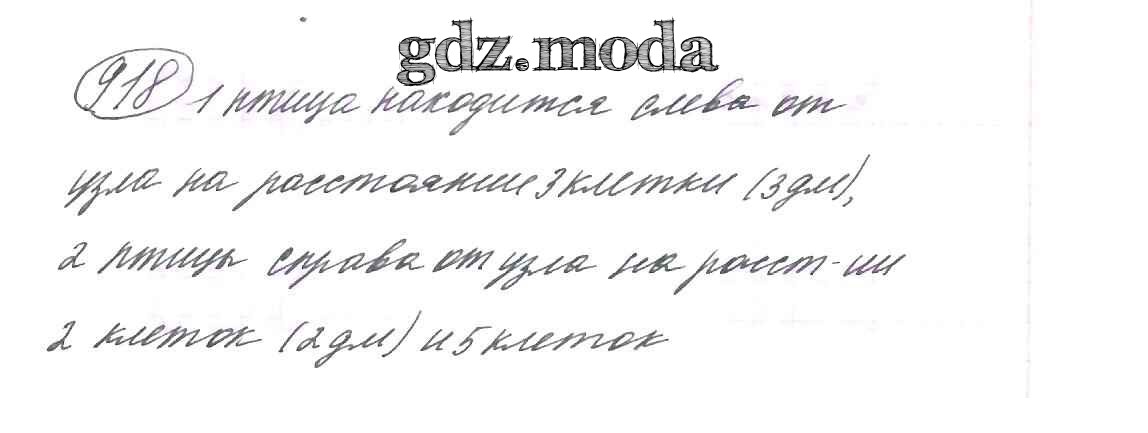 gdz.moda
918 1 птица находится слева от
узла на расстоянии 3 клетки (3 дм),
2 птицы справа от узла на расст-ии
2 клеток (2 дм) и 5 клеток